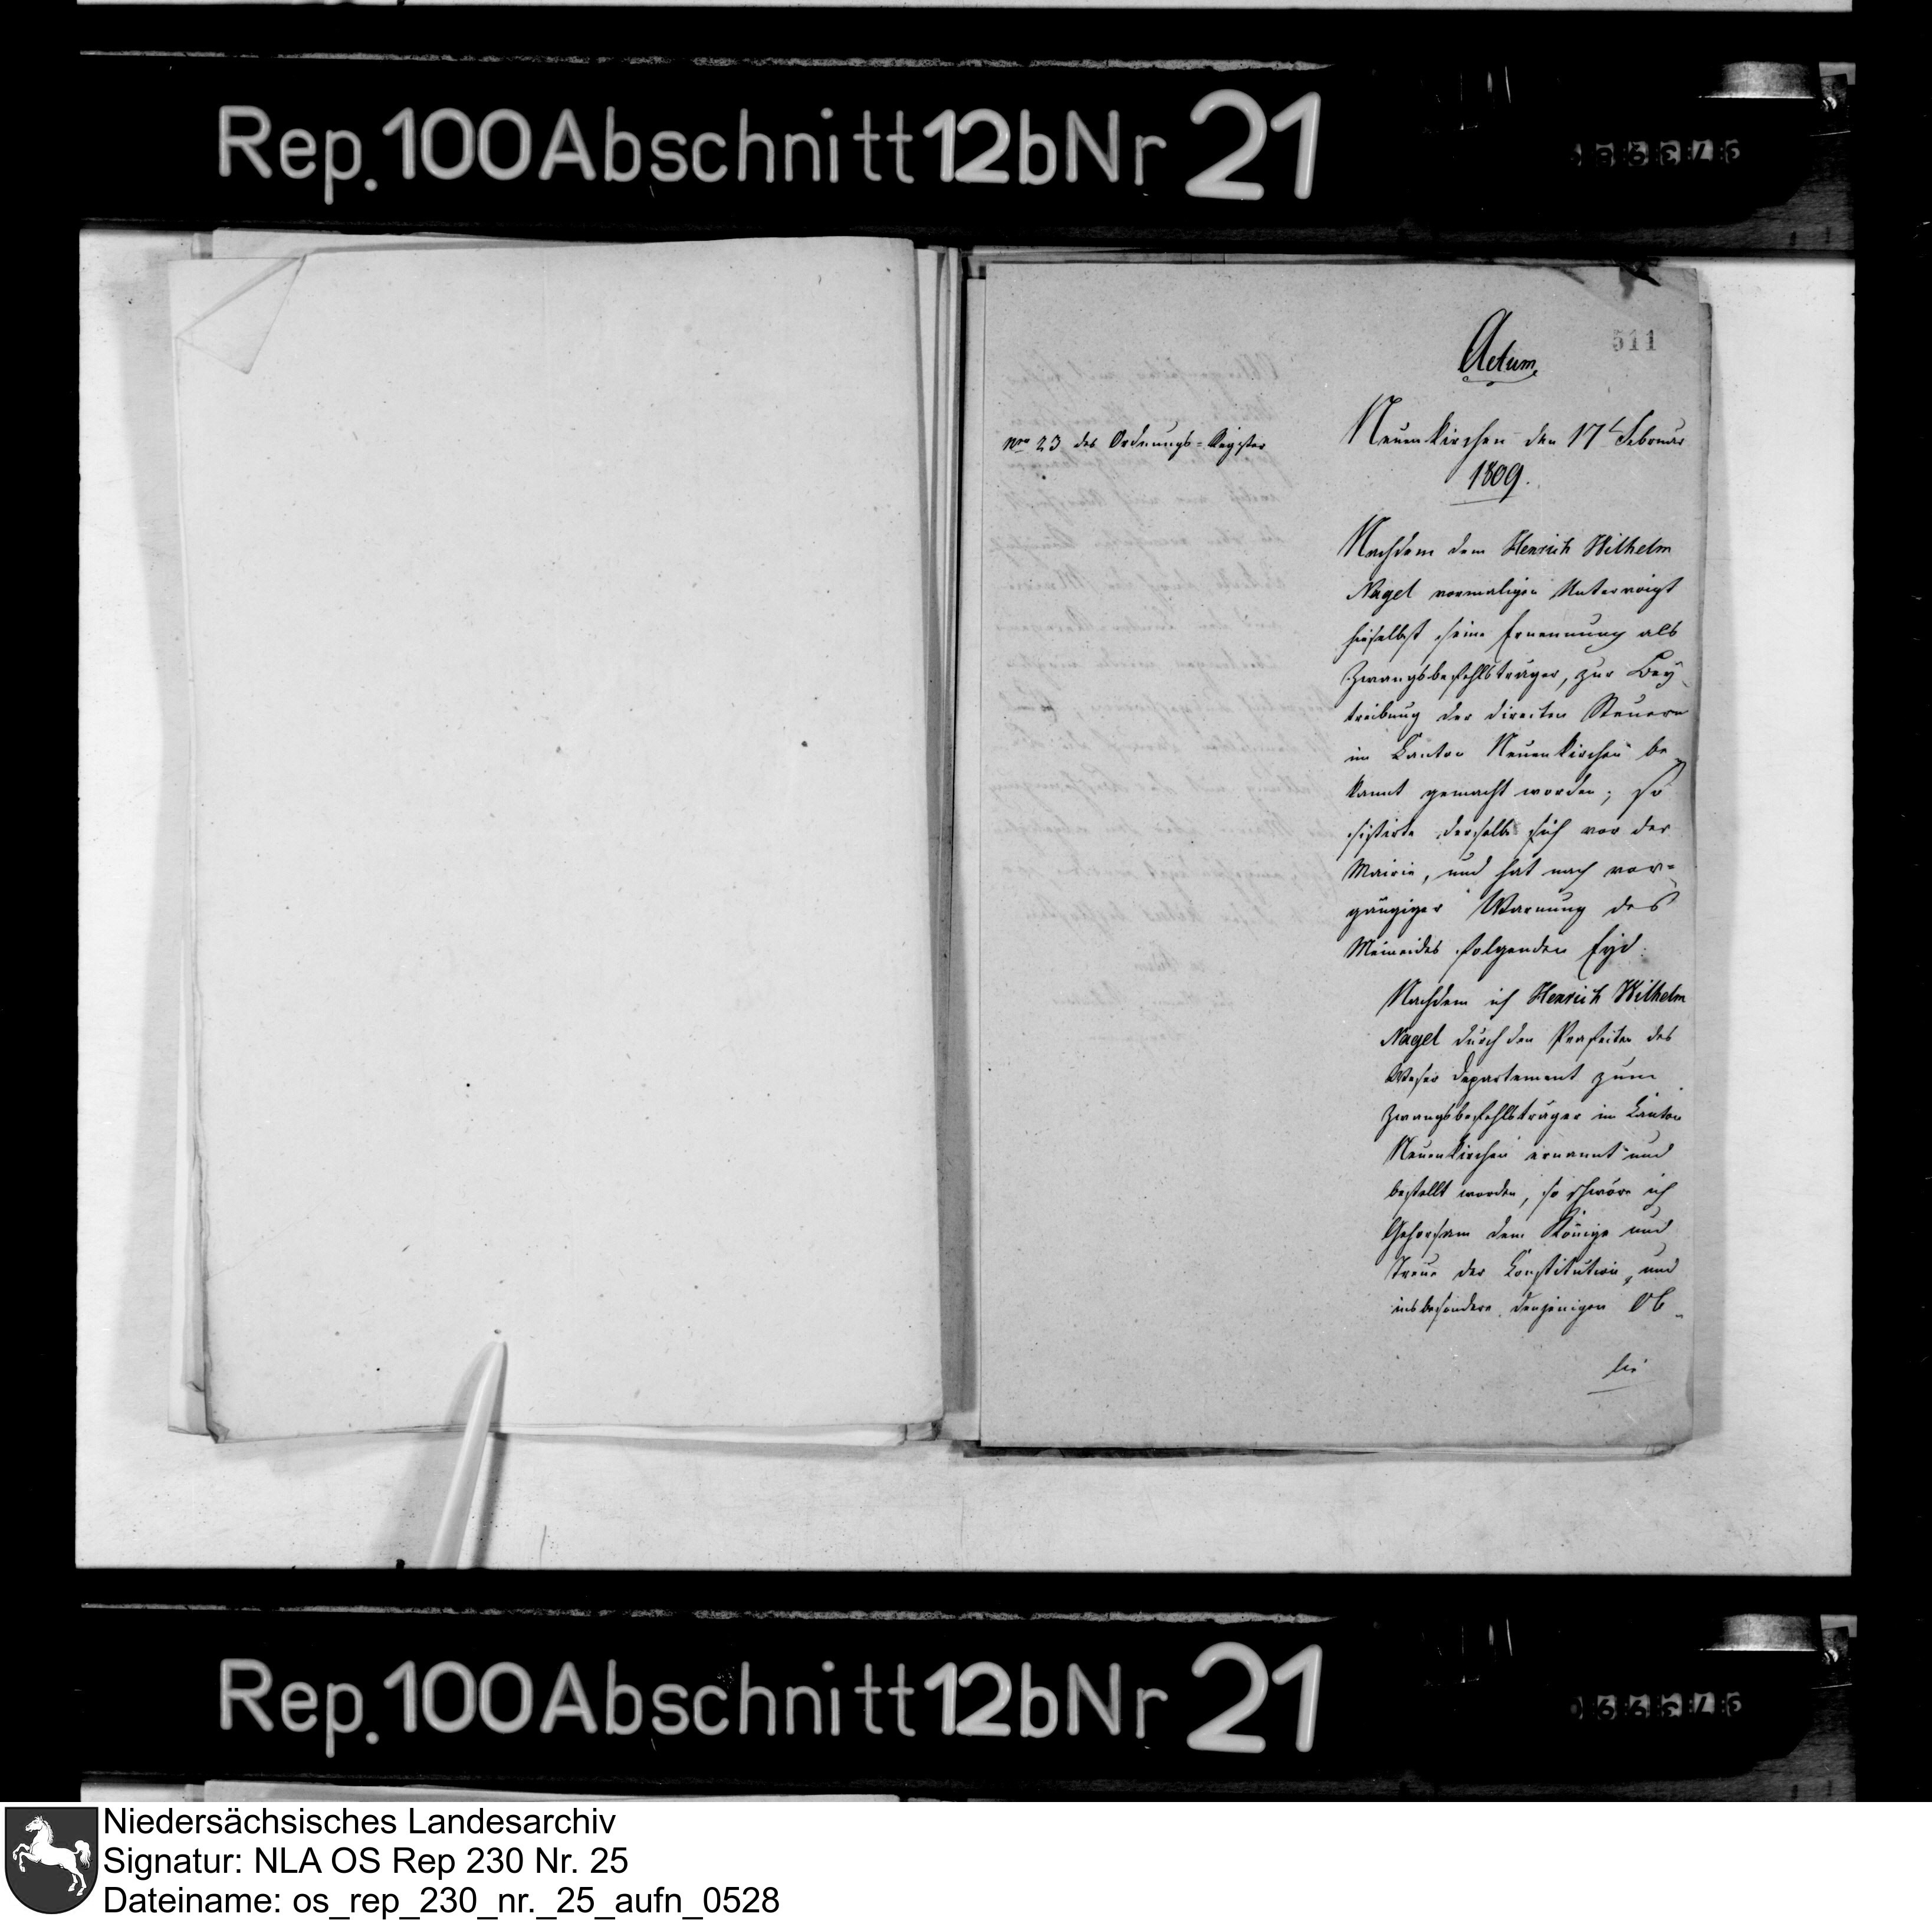 Rep. 100 Abschnitt 12b Nr 21
511
Actum
Nro 23 des Ordnungs-Register
Neuenkirchen den 17t Februar
1809.
Nachdem dem Henrich Wilhelm
Nagel vormaligen Untervoigt
hieselbst seine Ernennung als
Zwangsbefehlsträger, zur Bey-
treibung der directen Steuern
im Canton Neuenkirchen be-
kannt gemacht worden; so
sistirte derselbe sich vor der
Mairie, und hat nach vor-
gängiger Warnung des
Meineides folgenden Eyd:
Nachdem ich Henrich Wilhelm
Nagel durch den Praefecten des
Weser Departement zum
Zwangsbefehlsträger im Canton
Neuenkirchen ernannt und
bestellt worden, so schwöre ich
Gehorsam dem Könige und
Treue der Constitution, und
insbesondere denjenigen Ob-
lie
Rep. 100 Abschnitt 12b Nr 21
Niedersächsisches Landesarchiv
Signatur: NLA OS Rep 230 Nr. 25
Dateiname: os_rep_230_nr._25_aufn_0528